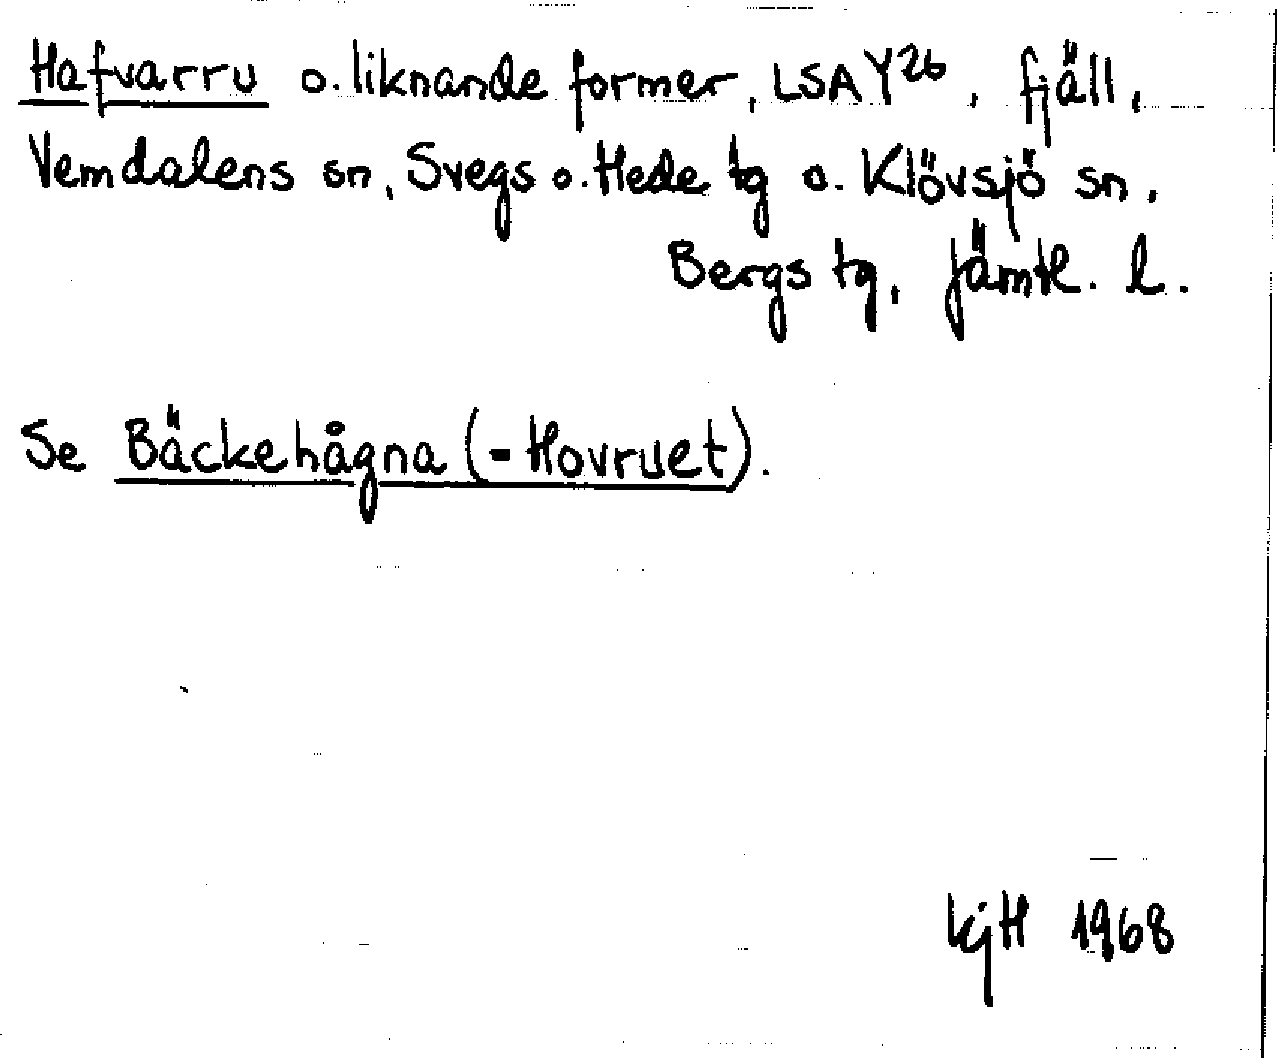 Hafvarru o. liknande former, LSA Y26, fjäll,
Vemdalens sn, Svegs o. Hede tg o. Klövsjö sn,
Bergs tg, Jämtl. l.
Se Bäckehågna (-Hovruet).
KjH 1968